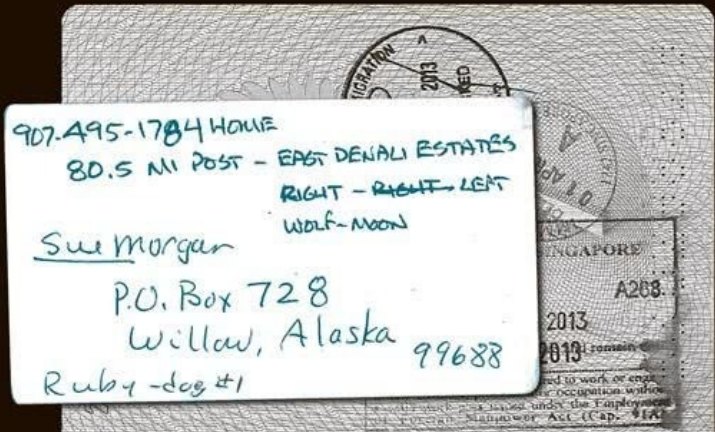 907.495-1784 HOME
80.5 MI POST - EAST DENALI ESTATES
RIGHT - RIGHT - LEFT
WOLF-MOON
Sue Morgan
P.O. Box 728
Willow, Alaska
99688
Ruby-dog #1
A
2013
01 APR
SINGAPORE
A268
2013
2013 remain
ed to work or enga
occupation witho
under the Employment
of Foreign Manpower Act (Cap. 91A)